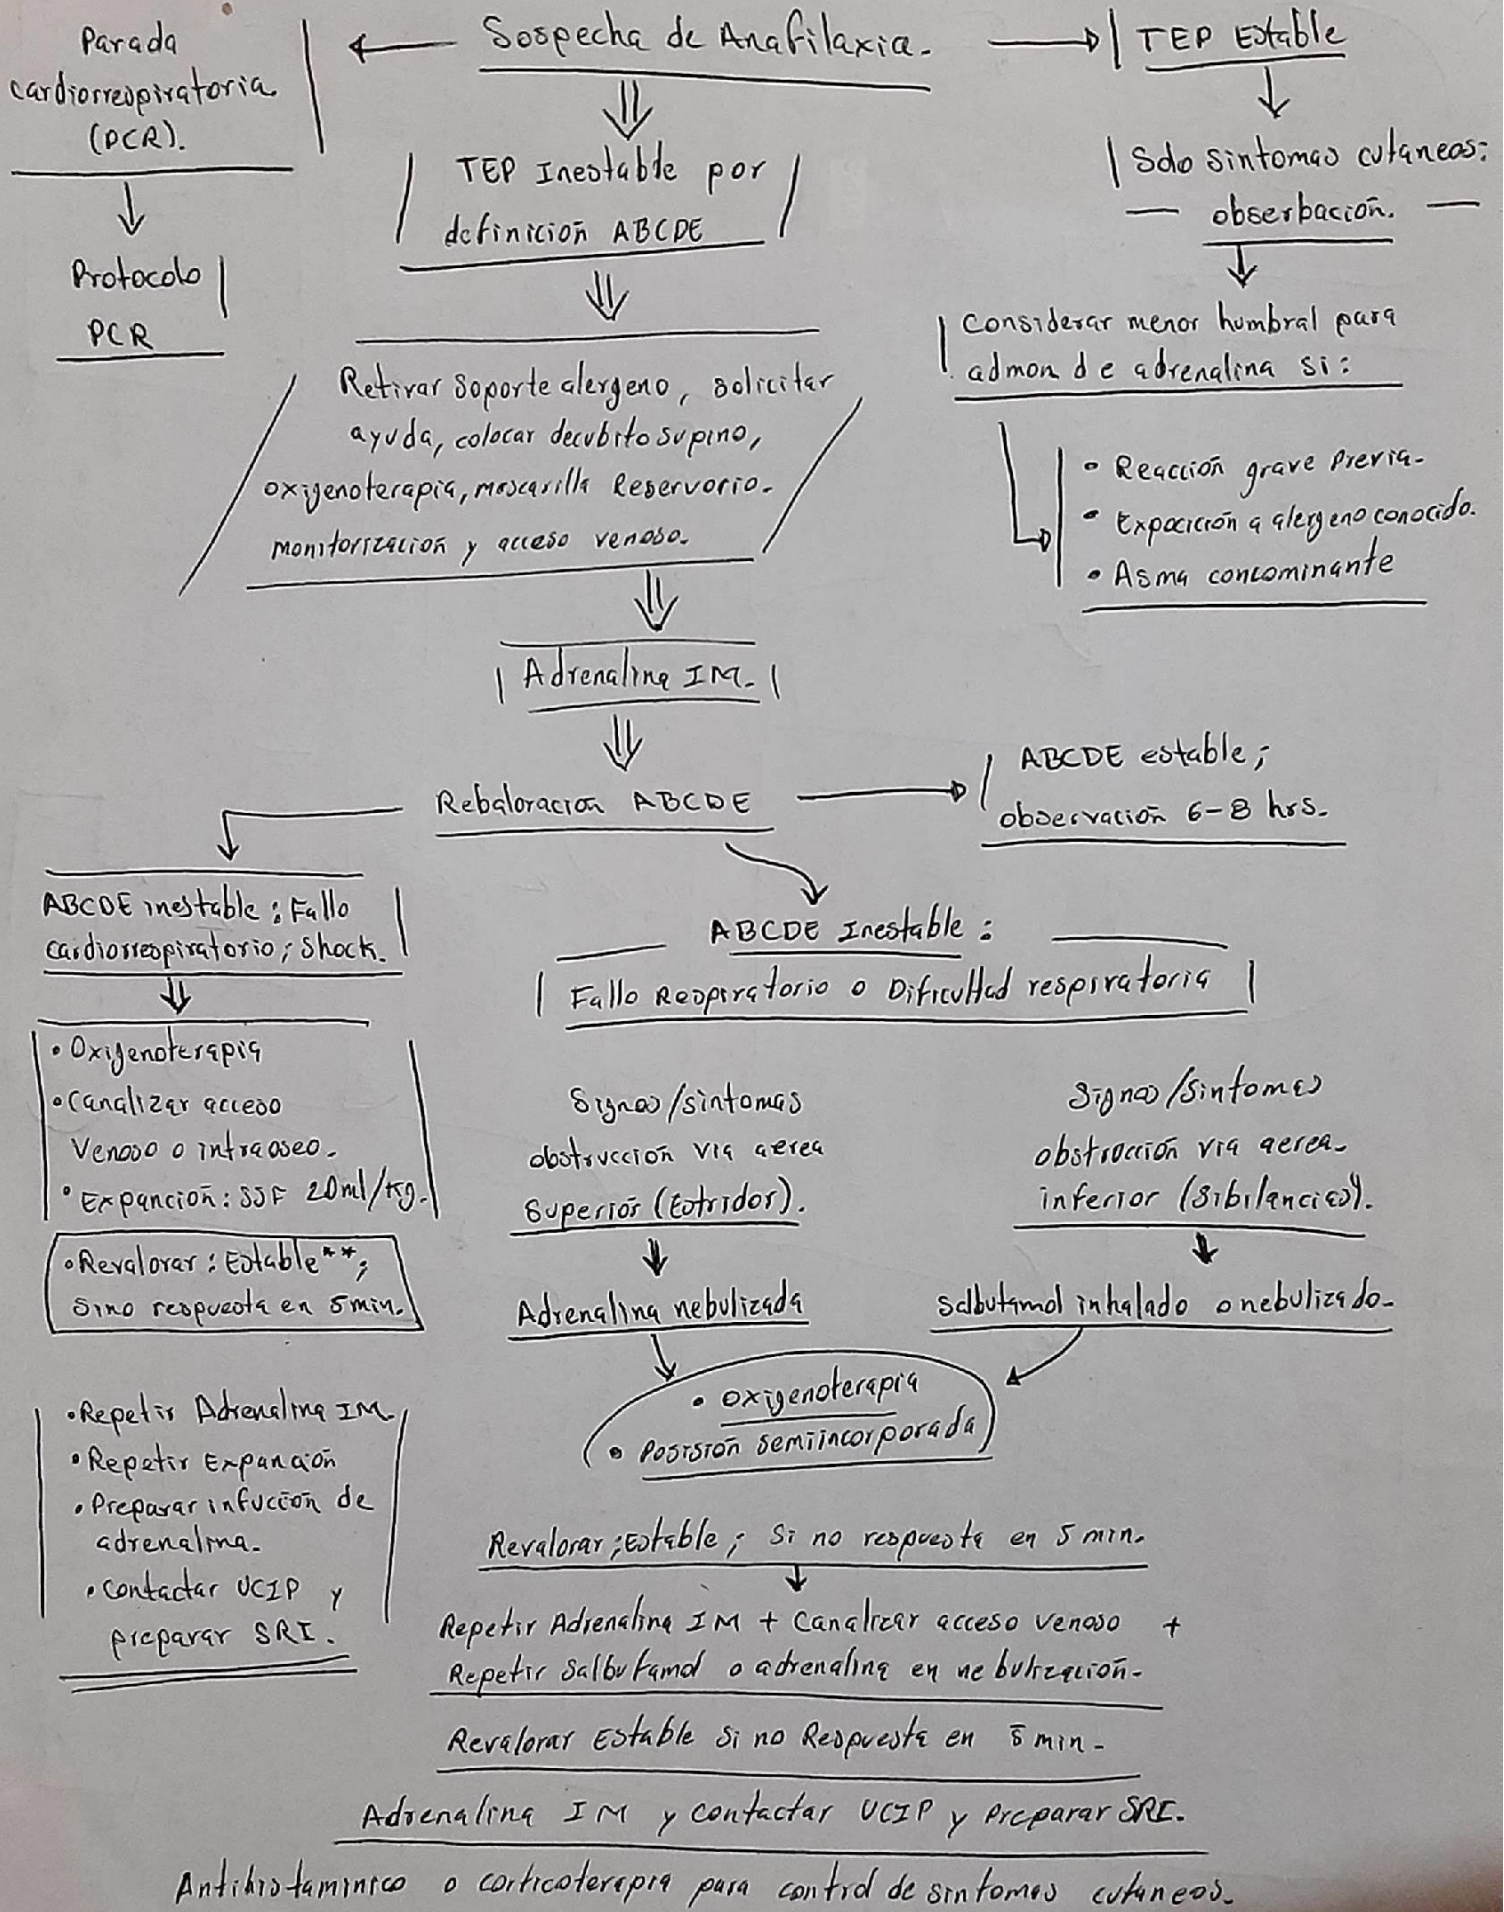 Sospecha de Anafilaxia.
Parada
cardiorrespiratoria.
(PCR).
Protocolo
PCR
TEP Estable
Solo sintomas cutaneos:
obserbacion.
Considerar menor humbral para
admon de adrenalina si:
• Reacción grave Previa.
• Expocición a alergeno conocido.
• Asma concominante
TEP Inestable por
definición ABCDE
Retirar Soporte alergeno, solicitar
ayuda, colocar decubito supino,
oxigenoterapia, mascarilla Reservorio.
monitorización y acceso venoso.
Adrenalina IM.
Rebaloración ABCDE
ABCDE estable;
observación 6-8 hrs.
ABCDE inestable: Fallo
cardiorrespiratorio; Shock.
• Oxigenoterapia
• Canalizar acceso
Venoso o intraoseo.
• Expanción: SSF 20ml/kg.
• Revalorar: Estable**;
Sino respuesta en 5min.
• Repetir Adrenalina IM.
• Repetir Expanción
• Preparar infución de
adrenalina.
• Contactar UCIP y
preparar SRI.
ABCDE Inestable:
Fallo Respiratorio o Dificultad respiratoria
Signos/sintomas
obstrucción via aerea
Superior (Estridor).
Adrenalina nebulizada
Signos/Sintomas
obstrocción via aerea
inferior (Sibilancias).
Salbutamol inhalado o nebulizado.
• Oxigenoterapia
• Posisión semiincorporada
Revalorar; Estable; Si no respuesta en 5 min.
Repetir Adrenalina IM + Canalizar acceso venoso +
Repetir Salbutamol o adrenalina en nebulización.
Revalorar Estable Si no Respuesta en 5 min.
Adrenalina IM y contactar UCIP y Preparar SRI.
Antihistaminico o corticoterapia para control de sintomas cutaneos.